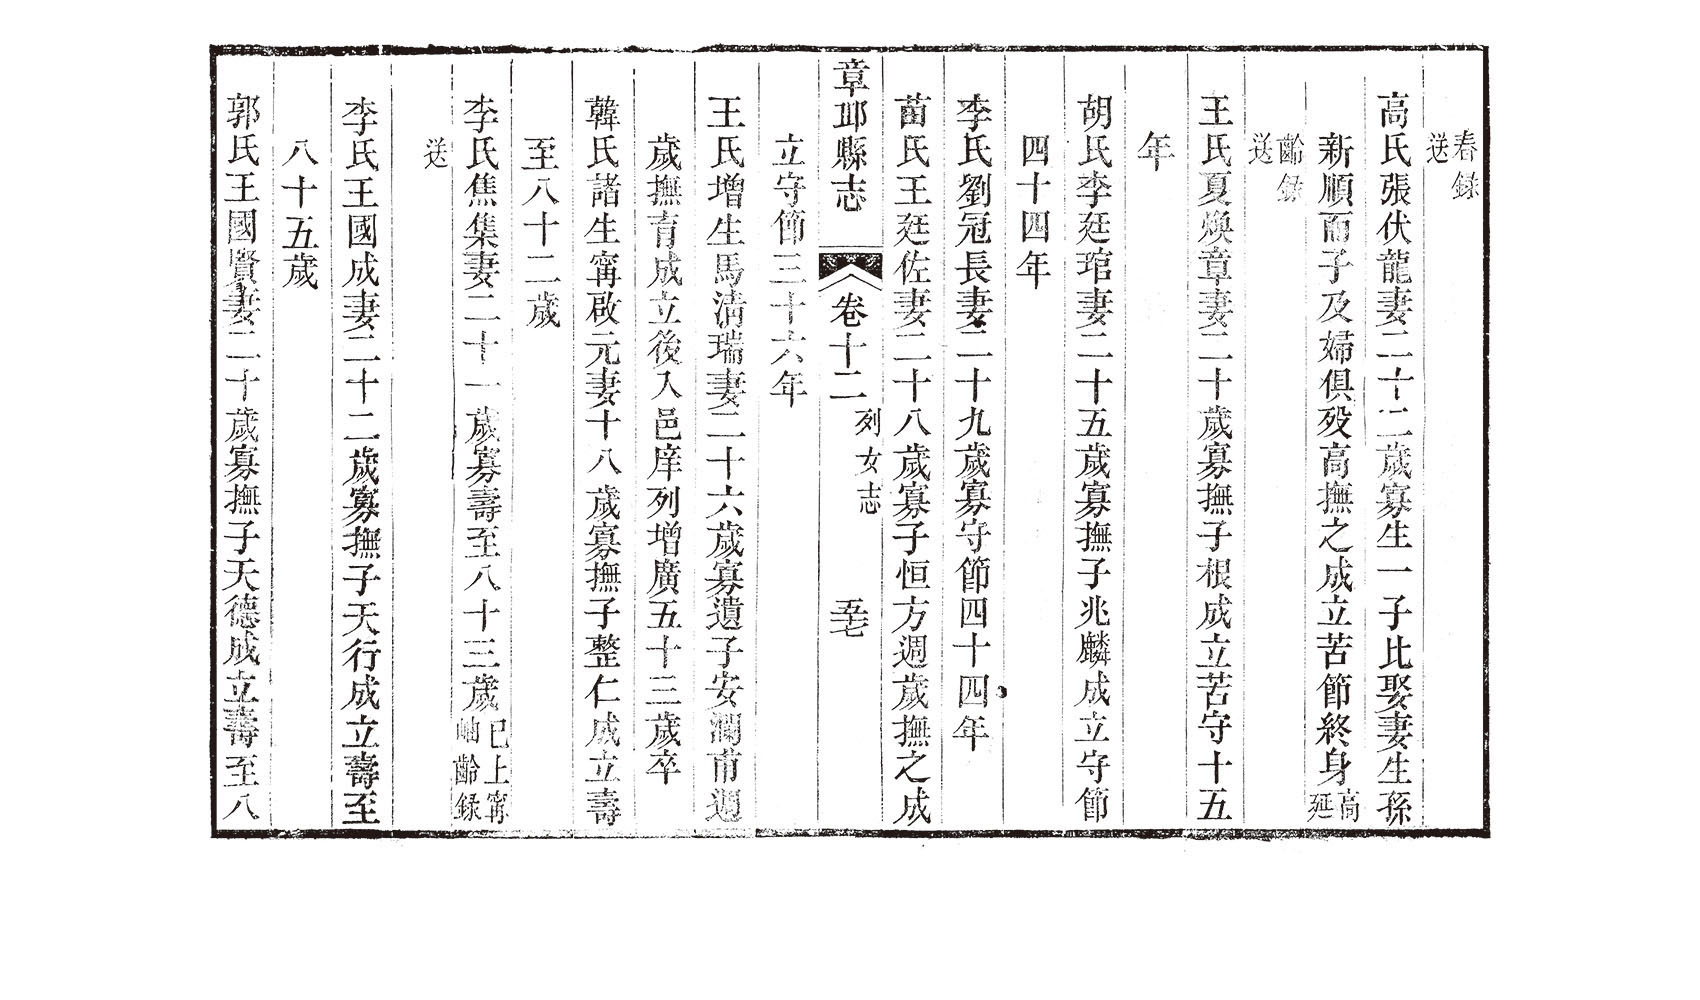 春錄送
高氏張伏龍妻二十二歲寡生一子比娶妻生孫
新順而子及婦俱歿高撫之成立苦節終身高延
齡錄送
王氏夏煥章妻二十歲寡撫子根成立苦守十五
年
胡氏李廷琯妻二十五歲寡撫子兆麟成立守節
四十四年
李氏劉冠長妻二十九歲寡守節四十四年
苗氏王廷佐妻二十八歲寡子恒方週歲撫之成
章邱縣志 卷十二 列女志 五七
立守節三十六年
王氏增生馬清瑞妻二十六歲寡遺子安瀾甫週
歲撫育成立後入邑庠列增廣五十三歲卒
韓氏諸生甯啟元妻十八歲寡撫子整仁成立壽
至八十二歲
李氏焦集妻二十一歲寡壽至八十三歲已上甯岫齡錄
送
李氏王國成妻二十二歲寡撫子天行成立壽至
八十五歲
郭氏王國賢妻二十歲寡撫子天德成立壽至八